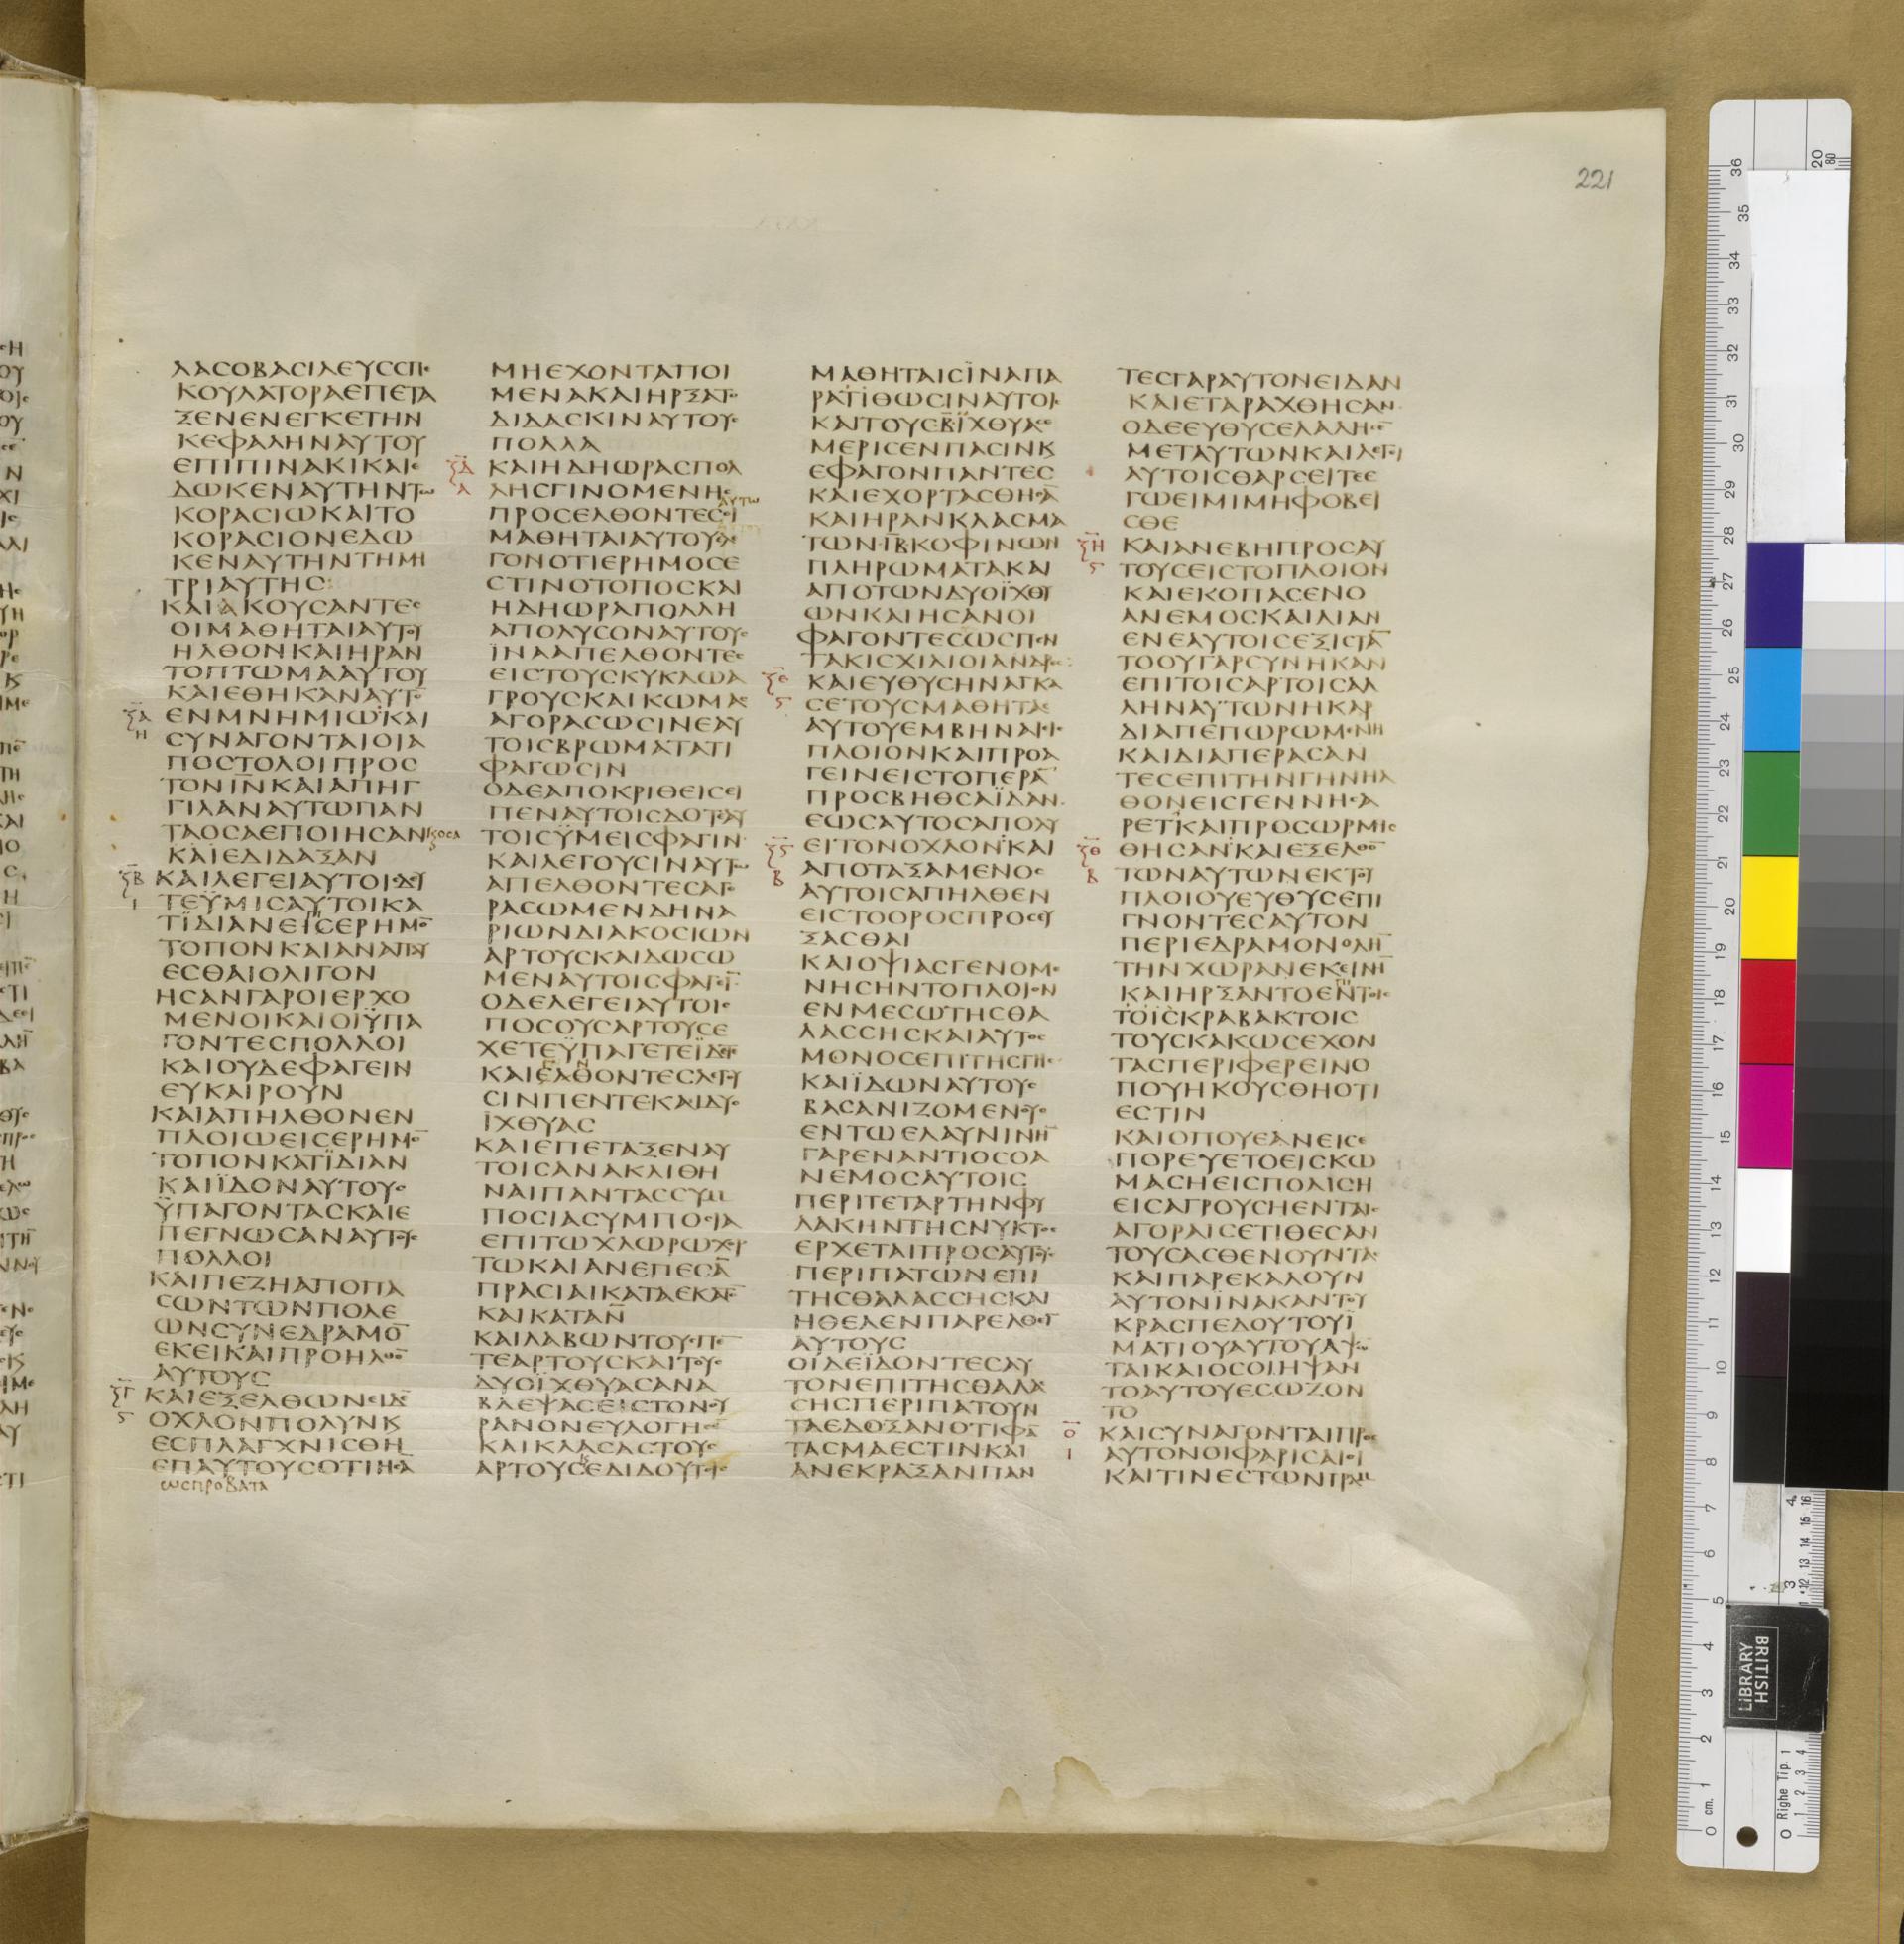 221
ΛΑϹΟΒΑϹΙΛΕΥϹϹΠΕ
ΚΟΥΛΑΤΟΡΑΕΠΕΤΑ
ΞΕΝΕΝΕΓΚΕΤΗΝ
ΚΕΦΑΛΗΝΑΥΤΟΥ
ΕΠΙΠΙΝΑΚΙΚΑΙΕ
ΔΩΚΕΝΑΥΤΗΝΤΩ
ΚΟΡΑϹΙΩΚΑΙΤΟ
ΚΟΡΑϹΙΟΝΕΔΩ
ΚΕΝΑΥΤΗΝΤΗΜΗ
ΤΡΙΑΥΤΗϹ
ΚΑΙΑΚΟΥϹΑΝΤΕϹ
ΟΙΜΑΘΗΤΑΙΑΥΤΟΥ
ΗΛΘΟΝΚΑΙΗΡΑΝ
ΤΟΠΤΩΜΑΑΥΤΟΥ
ΚΑΙΕΘΗΚΑΝΑΥΤΟ
ΕΝΜΝΗΜΙΩΚΑΙ
ϹΥΝΑΓΟΝΤΑΙΟΙΑ
ΠΟϹΤΟΛΟΙΠΡΟϹ
ΤΟΝΙ̅Ν̅ΚΑΙΑΠΗΓ
ΓΙΛΑΝΑΥΤΩΠΑΝ
ΤΑΟϹΑΕΠΟΙΗϹΑΝΚΟϹΑ
ΚΑΙΕΔΙΔΑΞΑΝ
ΚΑΙΛΕΓΕΙΑΥΤΟΙϹΔΕΥ
ΤΕΫΜΙϹΑΥΤΟΙΚΑ
ΤΪΔΙΑΝΕΙϹΕΡΗΜΟ̅
ΤΟΠΟΝΚΑΙΑΝΑΠΑΥ
ΕϹΘΑΙΟΛΙΓΟΝ
ΗϹΑΝΓΑΡΟΙΕΡΧΟ
ΜΕΝΟΙΚΑΙΟΙΫΠΑ
ΓΟΝΤΕϹΠΟΛΛΟΙ
ΚΑΙΟΥΔΕΦΑΓΕΙΝ
ΕΥΚΑΙΡΟΥΝ
ΚΑΙΑΠΗΛΘΟΝΕΝ
ΠΛΟΙΩΕΙϹΕΡΗΜΟ̅
ΤΟΠΟΝΚΑΤΪΔΙΑΝ
ΚΑΙΪΔΟΝΑΥΤΟΥϹ
ΫΠΑΓΟΝΤΑϹΚΑΙΕ
ΠΕΓΝΩϹΑΝΑΥΤΟΥϹ
ΠΟΛΛΟΙ
ΚΑΙΠΕΖΗΑΠΟΠΑ
ϹΩΝΤΩΝΠΟΛΕ
ΩΝϹΥΝΕΔΡΑΜΟ̅
ΕΚΕΙΚΑΙΠΡΟΗΛΘΟ̅
ΑΥΤΟΥϹ
ΚΑΙΕΞΕΛΘΩΝΕΙΔΕ̅
ΟΧΛΟΝΠΟΛΥΝΚ
ΕϹΠΛΑΓΧΝΙϹΘΗ
ΕΠΑΥΤΟΥϹΟΤΙΗϹΑ̅
ΩϹΠΡΟΒΑΤΑ
ΜΗΕΧΟΝΤΑΠΟΙ
ΜΕΝΑΚΑΙΗΡΞΑΤΟ
ΔΙΔΑϹΚΙΝΑΥΤΟΥϹ
ΠΟΛΛΑ
ΚΑΙΗΔΗΩΡΑϹΠΟΛ
ΛΗϹΓΙΝΟΜΕΝΗϹ
ΑΥΤΩ
ΠΡΟϹΕΛΘΟΝΤΕϹΟΙ
ΜΑΘΗΤΑΙΑΥΤΟΥΕΛΕ
ΓΟΝΟΤΙΕΡΗΜΟϹΕ
ϹΤΙΝΟΤΟΠΟϹΚΑΙ
ΗΔΗΩΡΑΠΟΛΛΗ
ΑΠΟΛΥϹΟΝΑΥΤΟΥϹ
ΪΝΑΑΠΕΛΘΟΝΤΕϹ
ΕΙϹΤΟΥϹΚΥΚΛΩΑ
ΓΡΟΥϹΚΑΙΚΩΜΑϹ
ΑΓΟΡΑϹΩϹΙΝΕΑΥ
ΤΟΙϹΒΡΩΜΑΤΑΤΙ
ΦΑΓΩϹΙΝ
ΟΔΕΑΠΟΚΡΙΘΕΙϹΕΙ
ΠΕΝΑΥΤΟΙϹΔΟΤΕΑΥ
ΤΟΙϹΫΜΕΙϹΦΑΓΙΝ
ΚΑΙΛΕΓΟΥϹΙΝΑΥΤΩ
ΑΠΕΛΘΟΝΤΕϹΑΓΟ
ΡΑϹΩΜΕΝΔΗΝΑ
ΡΙΩΝΔΙΑΚΟϹΙΩΝ
ΑΡΤΟΥϹΚΑΙΔΩϹΩ
ΜΕΝΑΥΤΟΙϹΦΑΓΕΙ̅
ΟΔΕΛΕΓΕΙΑΥΤΟΙϹ
ΠΟϹΟΥϹΑΡΤΟΥϹΕ
ΧΕΤΕΫΠΑΓΕΤΕΪΔΕΤΕ
ΚΑΙΕΛΘΟΝΤΕϹΛΕΓΟΥ
ϹΙΝΠΕΝΤΕΚΑΙΔΥΟ
ΪΧΘΥΑϹ
ΚΑΙΕΠΕΤΑΞΕΝΑΥ
ΤΟΙϹΑΝΑΚΛΙΘΗ
ΝΑΙΠΑΝΤΑϹϹΥΜ
ΠΟϹΙΑϹΥΜΠΟϹΙΑ
ΕΠΙΤΩΧΛΩΡΩΧΟΡ
ΤΩΚΑΙΑΝΕΠΕϹΑ̅
ΠΡΑϹΙΑΙΚΑΤΑΕΚΑΤΟ̅
ΚΑΙΚΑΤΑΝ̅
ΚΑΙΛΑΒΩΝΤΟΥϹΠΕ̅
ΤΕΑΡΤΟΥϹΚΑΙΤΟΥϹ
ΔΥΟΪΧΘΥΑϹΑΝΑ
ΒΛΕΨΑϹΕΙϹΤΟΝΟΥ
ΡΑΝΟΝΕΥΛΟΓΗϹΕ̅
ΚΑΙΚΛΑϹΑϹΤΟΥϹ
ΑΡΤΟΥϹΕΔΙΔΟΥΤΟΙϹ
ΜΑΘΗΤΑΙϹΪΝΑΠΑ
ΡΑΤΙΘΩϹΙΝΑΥΤΟΙϹ
ΚΑΙΤΟΥϹΒ̅ΪΧΘΥΑϹ
ΜΕΡΙϹΕΝΠΑϹΙΝΚ
ΕΦΑΓΟΝΠΑΝΤΕϹ
ΚΑΙΕΧΟΡΤΑϹΘΗϹΑ̅
ΚΑΙΗΡΑΝΚΛΑϹΜΑ
ΤΩΝΙ̅Β̅ΚΟΦΙΝΩΝ
ΠΛΗΡΩΜΑΤΑΚΑΙ
ΑΠΟΤΩΝΔΥΟΪΧΘΥ
ΩΝΚΑΙΗϹΑΝΟΙ
ΦΑΓΟΝΤΕϹΩϹΠΕΝ
ΤΑΚΙϹΧΙΛΙΟΙΑΝΔΡΕϹ
ΚΑΙΕΥΘΥϹΗΝΑΓΚΑ
ϹΕΤΟΥϹΜΑΘΗΤΑϹ
ΑΥΤΟΥΕΜΒΗΝΑΙΕΙϹ
ΠΛΟΙΟΝΚΑΙΠΡΟΑ
ΓΕΙΝΕΙϹΤΟΠΕΡΑ̅
ΠΡΟϹΒΗΘϹΑΪΔΑΝ
ΕΩϹΑΥΤΟϹΑΠΟΛΥ
ΕΙΤΟΝΟΧΛΟΝΚΑΙ
ΑΠΟΤΑΞΑΜΕΝΟϹ
ΑΥΤΟΙϹΑΠΗΛΘΕΝ
ΕΙϹΤΟΟΡΟϹΠΡΟϹΕΥ
ΞΑϹΘΑΙ
ΚΑΙΟΨΙΑϹΓΕΝΟΜΕ
ΝΗϹΗΝΤΟΠΛΟΙΟΝ
ΕΝΜΕϹΩΤΗϹΘΑ
ΛΑϹϹΗϹΚΑΙΑΥΤΟϹ
ΜΟΝΟϹΕΠΙΤΗϹΓΗϹ
ΚΑΙΪΔΩΝΑΥΤΟΥϹ
ΒΑϹΑΝΙΖΟΜΕΝΟΥϹ
ΕΝΤΩΕΛΑΥΝΙΝΗ̅
ΓΑΡΕΝΑΝΤΙΟϹΟΑ
ΝΕΜΟϹΑΥΤΟΙϹ
ΠΕΡΙΤΕΤΑΡΤΗΝΦΥ
ΛΑΚΗΝΤΗϹΝΥΚΤΟϹ
ΕΡΧΕΤΑΙΠΡΟϹΑΥΤΟΥϹ
ΠΕΡΙΠΑΤΩΝΕΠΙ
ΤΗϹΘΑΛΑϹϹΗϹΚΑΙ
ΗΘΕΛΕΝΠΑΡΕΛΘΕΙ̅
ΑΥΤΟΥϹ
ΟΙΔΕΪΔΟΝΤΕϹΑΥ
ΤΟΝΕΠΙΤΗϹΘΑΛΑϹ
ϹΗϹΠΕΡΙΠΑΤΟΥΝ
ΤΑΕΔΟΞΑΝΟΤΙΦΑ̅
ΤΑϹΜΑΕϹΤΙΝΚΑΙ
ΑΝΕΚΡΑΞΑΝΠΑΝ
ΤΕϹΓΑΡΑΥΤΟΝΕΙΔΑΝ
ΚΑΙΕΤΑΡΑΧΘΗϹΑΝ
ΟΔΕΕΥΘΥϹΕΛΑΛΗϹΕ̅
ΜΕΤΑΥΤΩΝΚΑΙΛΕΓΕΙ
ΑΥΤΟΙϹΘΑΡϹΕΙΤΕΕ
ΓΩΕΙΜΙΜΗΦΟΒΕΙ
ϹΘΕ
ΚΑΙΑΝΕΒΗΠΡΟϹΑΥ
ΤΟΥϹΕΙϹΤΟΠΛΟΙΟΝ
ΚΑΙΕΚΟΠΑϹΕΝΟ
ΑΝΕΜΟϹΚΑΙΛΙΑΝ
ΕΝΕΑΥΤΟΙϹΕΞΙϹΤΑ̅
ΤΟΟΥΓΑΡϹΥΝΗΚΑΝ
ΕΠΙΤΟΙϹΑΡΤΟΙϹΑΛ
ΛΗΝΑΥΤΩΝΗΚΑΡ
ΔΙΑΠΕΠΩΡΩΜΕΝΗ
ΚΑΙΔΙΑΠΕΡΑϹΑΝ
ΤΕϹΕΠΙΤΗΝΓΗΝΗΛ
ΘΟΝΕΙϹΓΕΝΝΗϹΑ
ΡΕΤΚΑΙΠΡΟϹΩΡΜΙϹ
ΘΗϹΑΝΚΑΙΕΞΕΛΘΟ̅
ΤΩΝΑΥΤΩΝΕΚΤΟΥ
ΠΛΟΙΟΥΕΥΘΥϹΕΠΙ
ΓΝΟΝΤΕϹΑΥΤΟΝ
ΠΕΡΙΕΔΡΑΜΟΝΟΛΗ̅
ΤΗΝΧΩΡΑΝΕΚΕΙΝΗ̅
ΚΑΙΗΡΞΑΝΤΟΕΝΤΟΙϹ
ΤΟΙϹΚΡΑΒΑΚΤΟΙϹ
ΤΟΥϹΚΑΚΩϹΕΧΟΝ
ΤΑϹΠΕΡΙΦΕΡΕΙΝΟ
ΠΟΥΗΚΟΥϹΘΗΟΤΙ
ΕϹΤΙΝ
ΚΑΙΟΠΟΥΕΑΝΕΙϹΕ
ΠΟΡΕΥΕΤΟΕΙϹΚΩ
ΜΑϹΗΕΙϹΠΟΛΙϹΗ
ΕΙϹΑΓΡΟΥϹΗΕΝΤΑΙϹ
ΑΓΟΡΑΙϹΕΤΙΘΕϹΑΝ
ΤΟΥϹΑϹΘΕΝΟΥΝΤΑϹ
ΚΑΙΠΑΡΕΚΑΛΟΥΝ
ΑΥΤΟΝΙΝΑΚΑΝΤΟΥ
ΚΡΑϹΠΕΔΟΥΤΟΥΪ
ΜΑΤΙΟΥΑΥΤΟΥΑΨΩ̅
ΤΑΙΚΑΙΟϹΟΙΗΨΑΝ
ΤΟΑΥΤΟΥΕϹΩΖΟΝ
ΤΟ
ΚΑΙϹΥΝΑΓΟΝΤΑΙΠΡΟϹ
ΑΥΤΟΝΟΙΦΑΡΙϹΑΙΟΙ
ΚΑΙΤΙΝΕϹΤΩΝΓΡΑΜ
BRITISH
LIBRARY